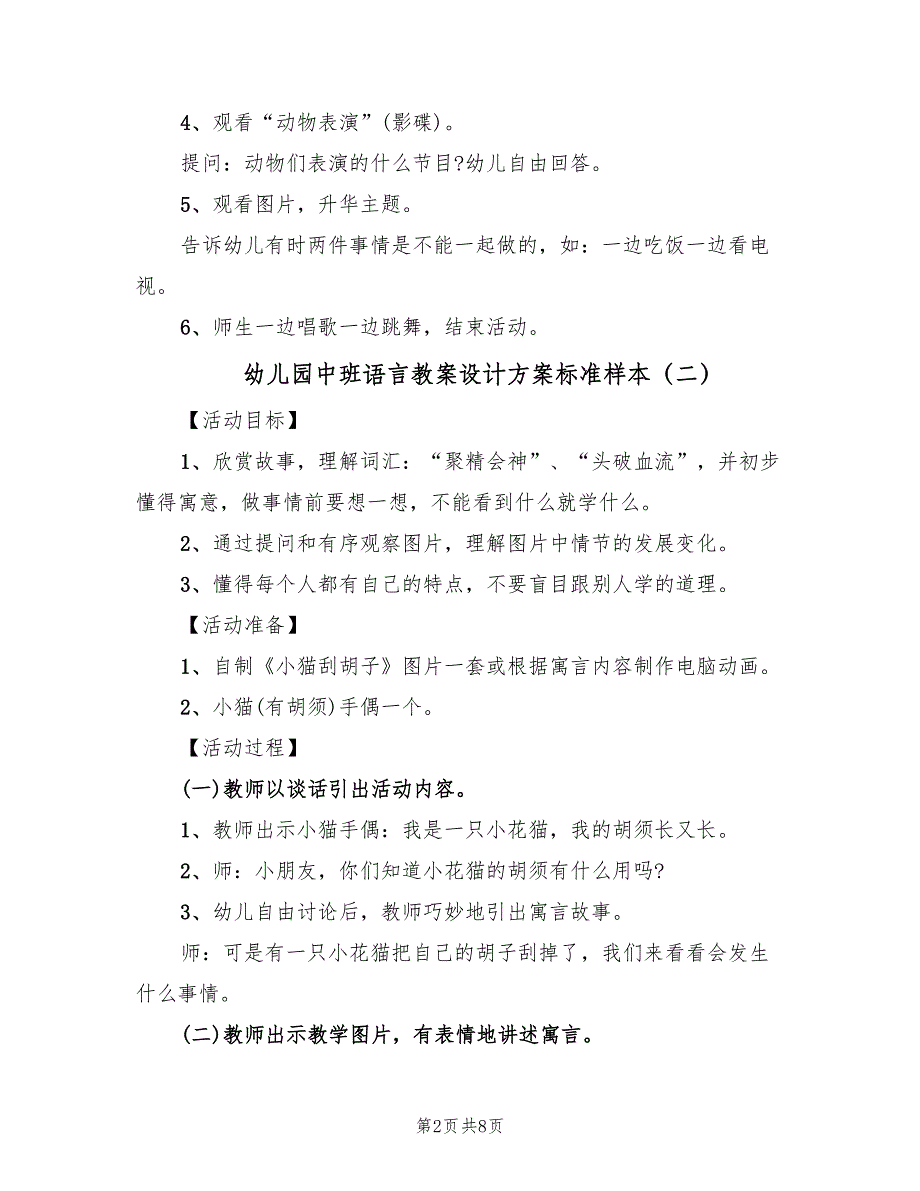 4、观看“动物表演”(影碟)。
提问：动物们表演的什么节目?幼儿自由回答。
5、观看图片，升华主题。
告诉幼儿有时两件事情是不能一起做的，如：一边吃饭一边看电
视。
6、师生一边唱歌一边跳舞，结束活动。
幼儿园中班语言教案设计方案标准样本（二）
【活动目标】
1、欣赏故事，理解词汇：“聚精会神”、“头破血流”，并初步
懂得寓意，做事情前要想一想，不能看到什么就学什么。
2、通过提问和有序观察图片，理解图片中情节的发展变化。
3、懂得每个人都有自己的特点，不要盲目跟别人学的道理。
【活动准备】
1、自制《小猫刮胡子》图片一套或根据寓言内容制作电脑动画。
2、小猫(有胡须)手偶一个。
【活动过程】
(一)教师以谈话引出活动内容。
1、教师出示小猫手偶：我是一只小花猫，我的胡须长又长。
2、师：小朋友，你们知道小花猫的胡须有什么用吗?
3、幼儿自由讨论后，教师巧妙地引出寓言故事。
师：可是有一只小花猫把自己的胡子刮掉了，我们来看看会发生
什么事情。
(二)教师出示教学图片，有表情地讲述寓言。
第2页 共8页